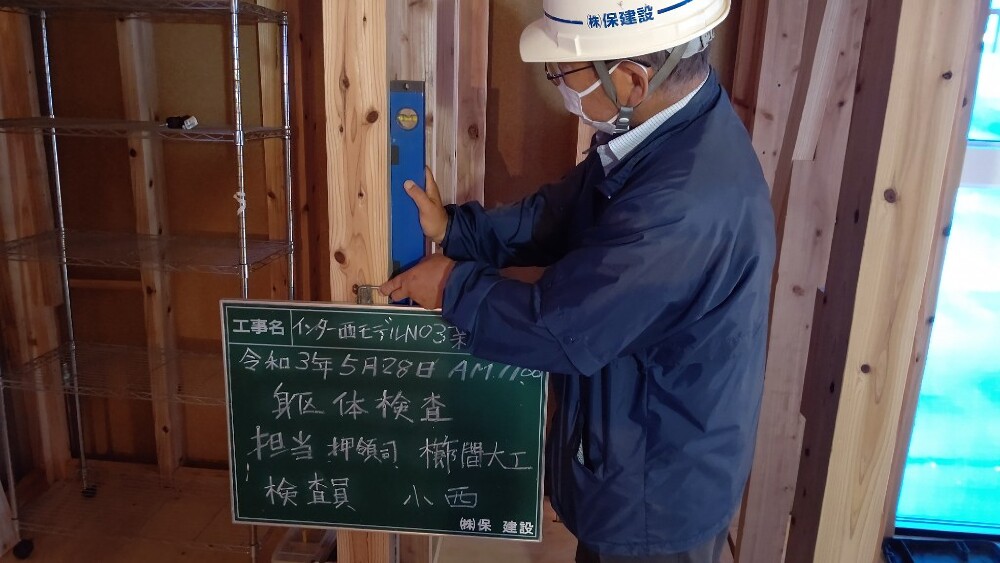 ㈱保建設
工事名 インター西モデルNO3
令和3年5月28日 AM.11:00
躯体検査
担当 押領司 櫛間大工
検査員 小西
㈱保 建設